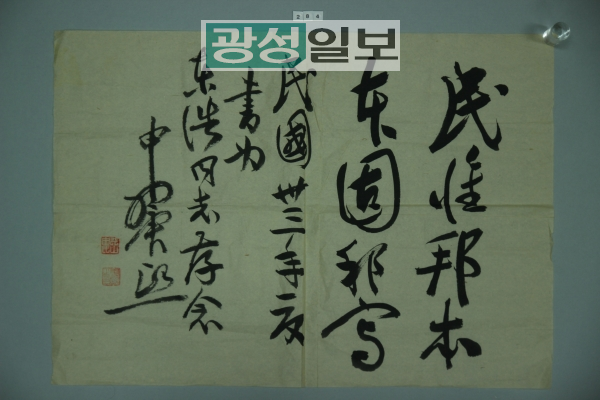 284
광성일보
民惟邦本
本固邦寧
民國卅三年夏
書为
东浩同志存念
申翼熙